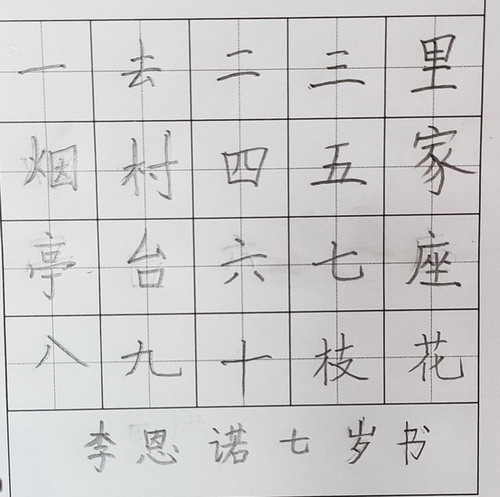 一去二三里
烟村四五家
亭台六七座
八九十枝花
李恩诺七岁书